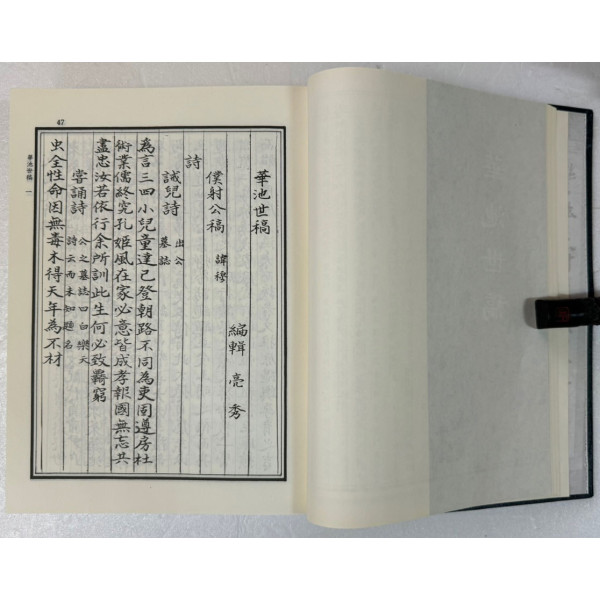 47
華池世稿 一
華池世稿
編輯 亮秀
僕射公稿 諱穆
詩
誡兒詩 出公墓誌
為言三四小兒童達已登朝路不同為吏固遵房杜
術業儒終究孔姬風在家必意皆成孝報國無忘共
盡忠汝若依行余所訓此生何必致羇窮
嘗誦詩 公之墓誌曰白樂天詩云而未知題名
虫全性命因無毒木得天年為不材